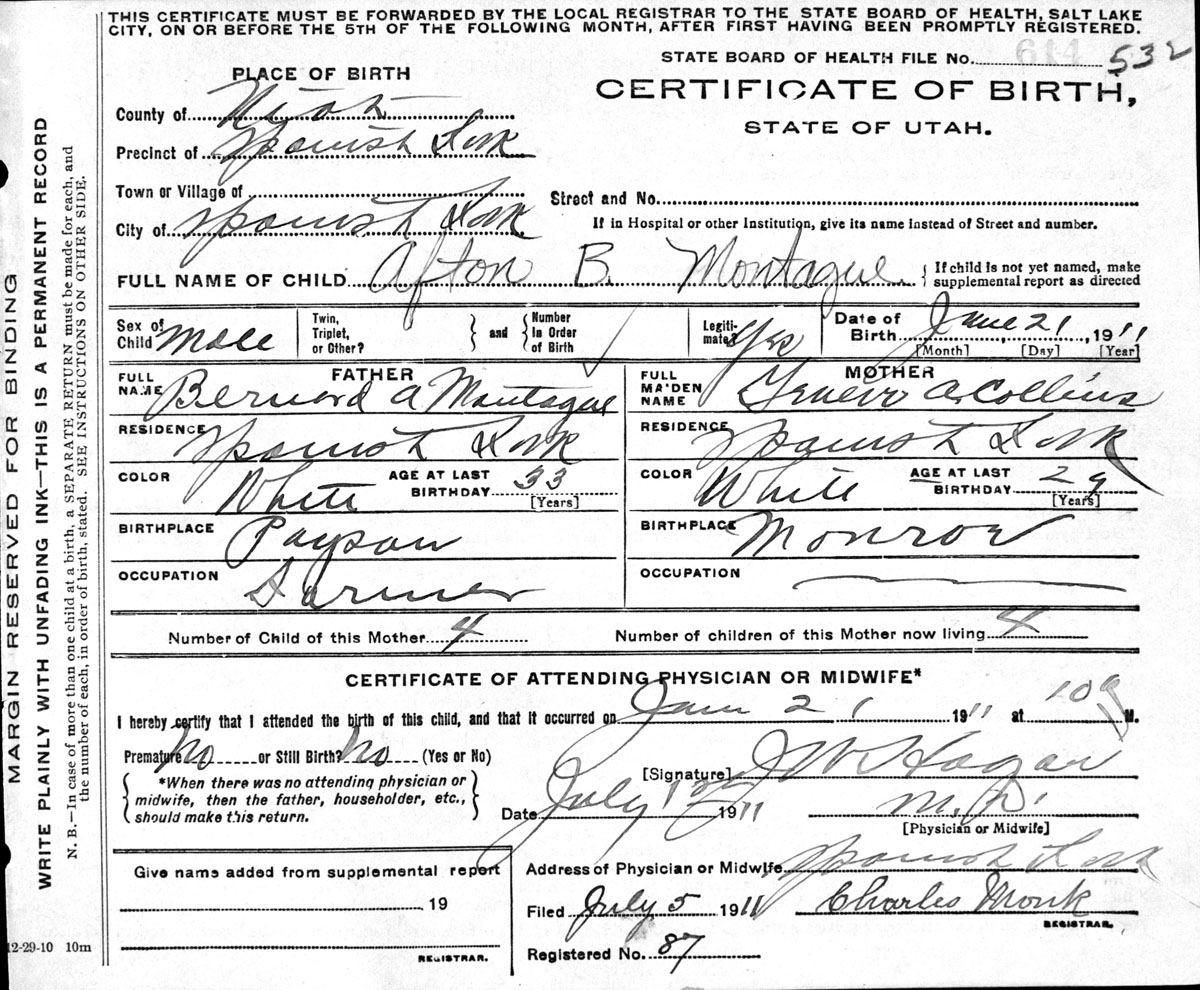 THIS CERTIFICATE MUST BE FORWARDED BY THE LOCAL REGISTRAR TO THE STATE BOARD OF HEALTH, SALT LAKE
CITY, ON OR BEFORE THE 5TH OF THE FOLLOWING MONTH, AFTER FIRST HAVING BEEN PROMPTLY REGISTERED.
STATE BOARD OF HEALTH FILE No. 614 532
PLACE OF BIRTH
CERTIFICATE OF BIRTH,
STATE OF UTAH.
County of
Precinct of Spanish Fork
Town or Village of
Street and No.
City of Spanish Fork
If in Hospital or other Institution, give its name instead of Street and number.
FULL NAME OF CHILD Afton B. Montague { If child is not yet named, make
supplemental report as directed
Sex of Child Male Twin, Triplet, or Other? } and { Number In Order of Birth Legiti-mate? Yes Date of Birth June 21, 1911
[Month] [Day] [Year]
FATHER MOTHER
FULL NAME Bernard A Montague FULL MAIDEN NAME A Collins
RESIDENCE Spanish Fork RESIDENCE Spanish Fork
COLOR White AGE AT LAST BIRTHDAY 33 [Years] COLOR White AGE AT LAST BIRTHDAY 29 [Years]
BIRTHPLACE Payson BIRTHPLACE Monroe
OCCUPATION Farmer OCCUPATION
Number of Child of this Mother 4 Number of children of this Mother now living 4
CERTIFICATE OF ATTENDING PHYSICIAN OR MIDWIFE*
I hereby certify that I attended the birth of this child, and that it occurred on June 21 1911 at 10 M.
Premature No or Still Birth? No (Yes or No)
[Signature] Hagan
*When there was no attending physician or
midwife, then the father, householder, etc.,
should make this return.
Date July 1911 M.D.
[Physician or Midwife]
Address of Physician or Midwife Spanish Fork
Give name added from supplemental report
19
REGISTRAR.
Filed July 5 1911 Charles Monk
REGISTRAR.
Registered No. 87
12-29-10 10m
MARGIN RESERVED FOR BINDING
WRITE PLAINLY WITH UNFADING INK—THIS IS A PERMANENT RECORD
N. B.—In case of more than one child at a birth, a SEPARATE RETURN must be made for each, and
the number of each, in order of birth, stated. SEE INSTRUCTIONS ON OTHER SIDE.